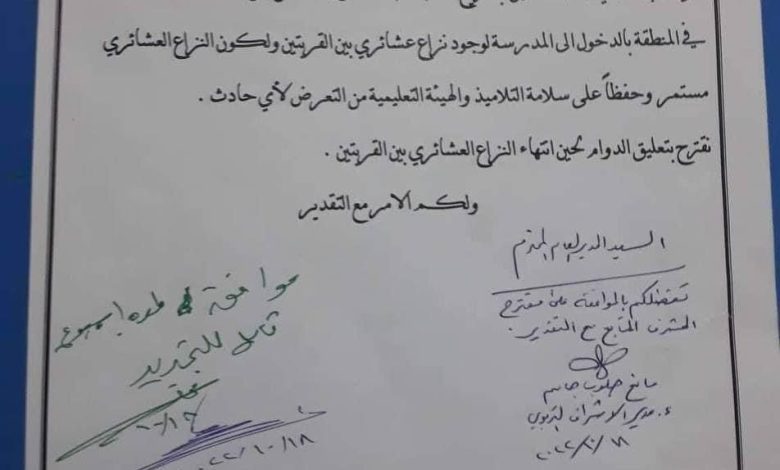 في المنطقة بالدخول الى المدرسة لوجود نزاع عشائري بين القريتين ولكون النزاع العشائري
مستمر وحفظاً على سلامة التلاميذ والهيئة التعليمية من التعرض لأي حادث .
نقترح بتعليق الدوام لحين انتهاء النزاع العشائري بين القريتين .
ولكم الامر مع التقدير
السيد المدير العام المحترم
تفضلكم بالموافقة على مقترح
المشرف المتابع مع التقدير .
جاسم
مدير الاشراف التربوي
٢٠٢٢/١٠/١٨
موافقة لمدة اسبوع
قابل للتجديد
٢٠٢٢/١٠/١٨